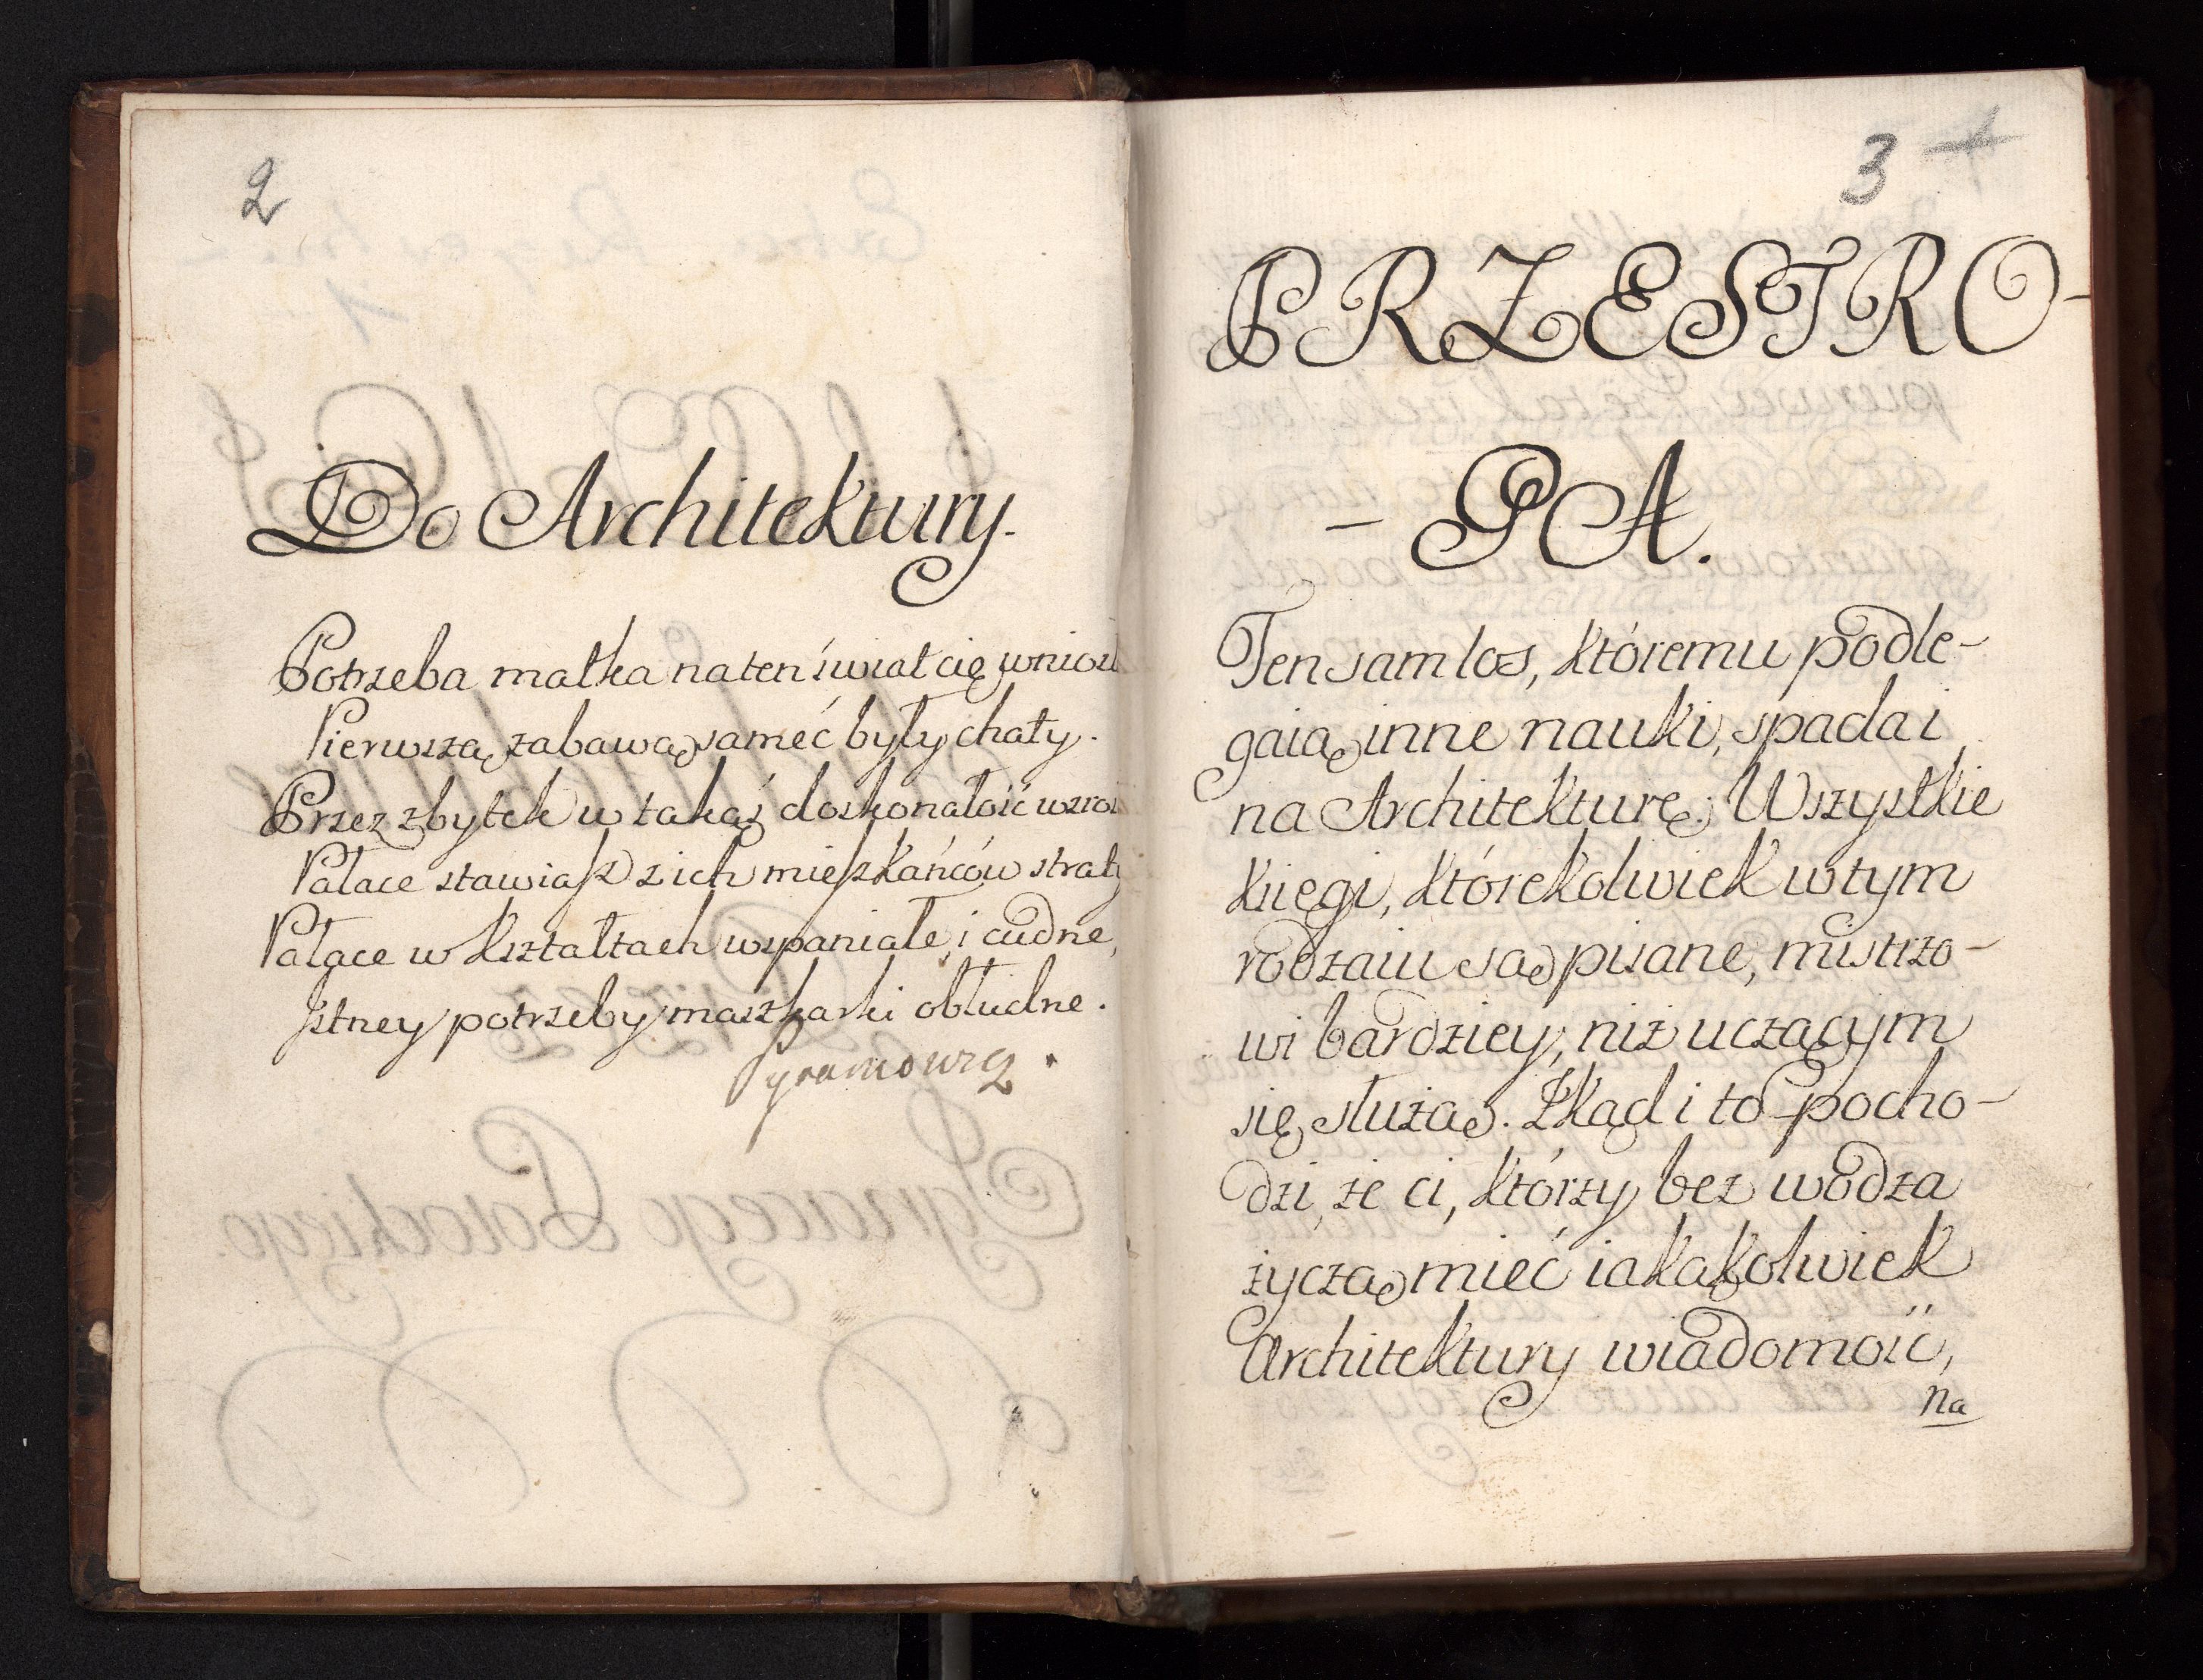 2
Do Architektury.
Potrzeba matka na ten świat cię wniosł
Pierwszą zabawą sameć były chaty.
Przez zbytek w takąś doskonałość wzros
Pałace stawiasz z ich mieszkańców straty
Pałace w kształtach wspaniałe, i cudne,
Istney potrzeby maszkarki obłudne.
3
PRZESTRO-
- GA.
Ten sam los, któremu podle-
gaią inne nauki, spada i
na Architekturę. Wszystkie
Księgi, którekolwiek w tym
rodzaiu są pisane, mistrzo-
wi bardziey, niż uczącym
się służą. Zkąd i to pocho-
dzi, że ci, którzy bez wodza
życzą mieć iakąkolwiek
Architektury wiadomość,
Na